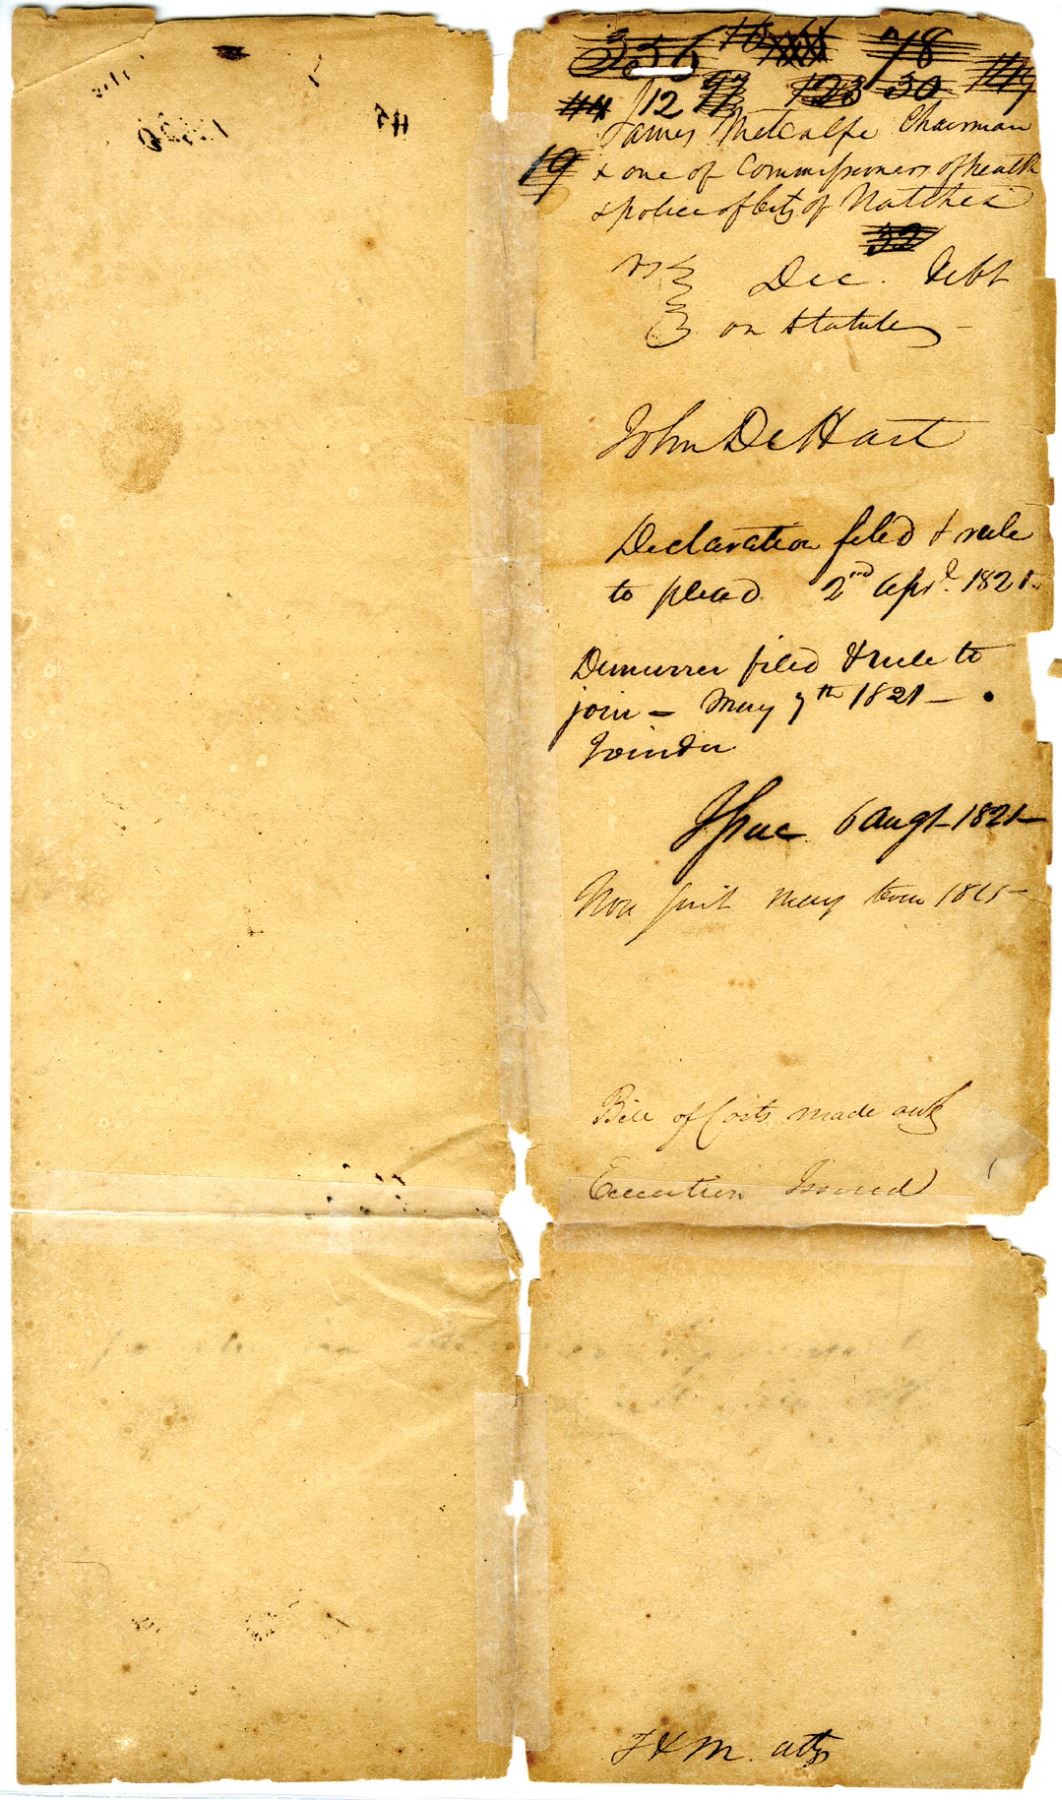 356 16 78
44 12 97 123 30 149
James Metcalfe Chairman
19 & one of Commissioners of health
& police of City of Natchez
32
vs Dec. Debt
on Statute
John DeHart
Declaration filed & rule
to plead 2nd Aprl. 1821
Demurrer filed & rule to
join — May 7th 1821 —
Joinder
Issue 6 Augt 1821
Non suit May term 18
Bill of Costs made out
Execution Issued
& M. attys